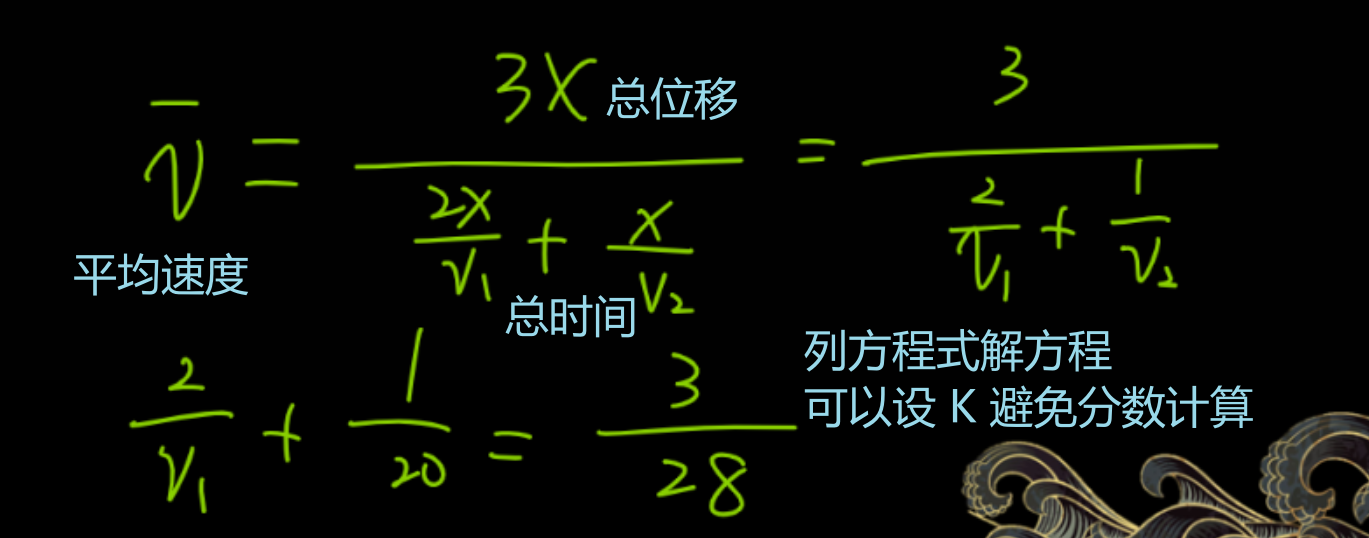 v̄ = 3x 总位移 / (2x/v₁ + x/v₂) = 3 / (2/v₁ + 1/v₂)
平均速度
总时间
2/v₁ + 1/20 = 3/28
列方程式解方程
可以设 K 避免分数计算